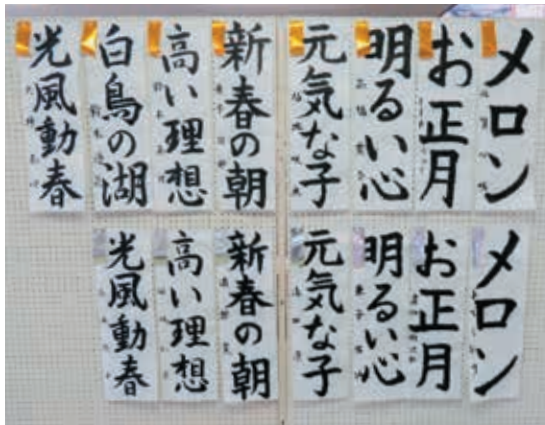 メロン
お正月
明るい心
元気な子
新春の朝
高い理想
白鳥の湖
光風動春
メロン
お正月
明るい心
元気な子
新春の朝
高い理想
光風動春